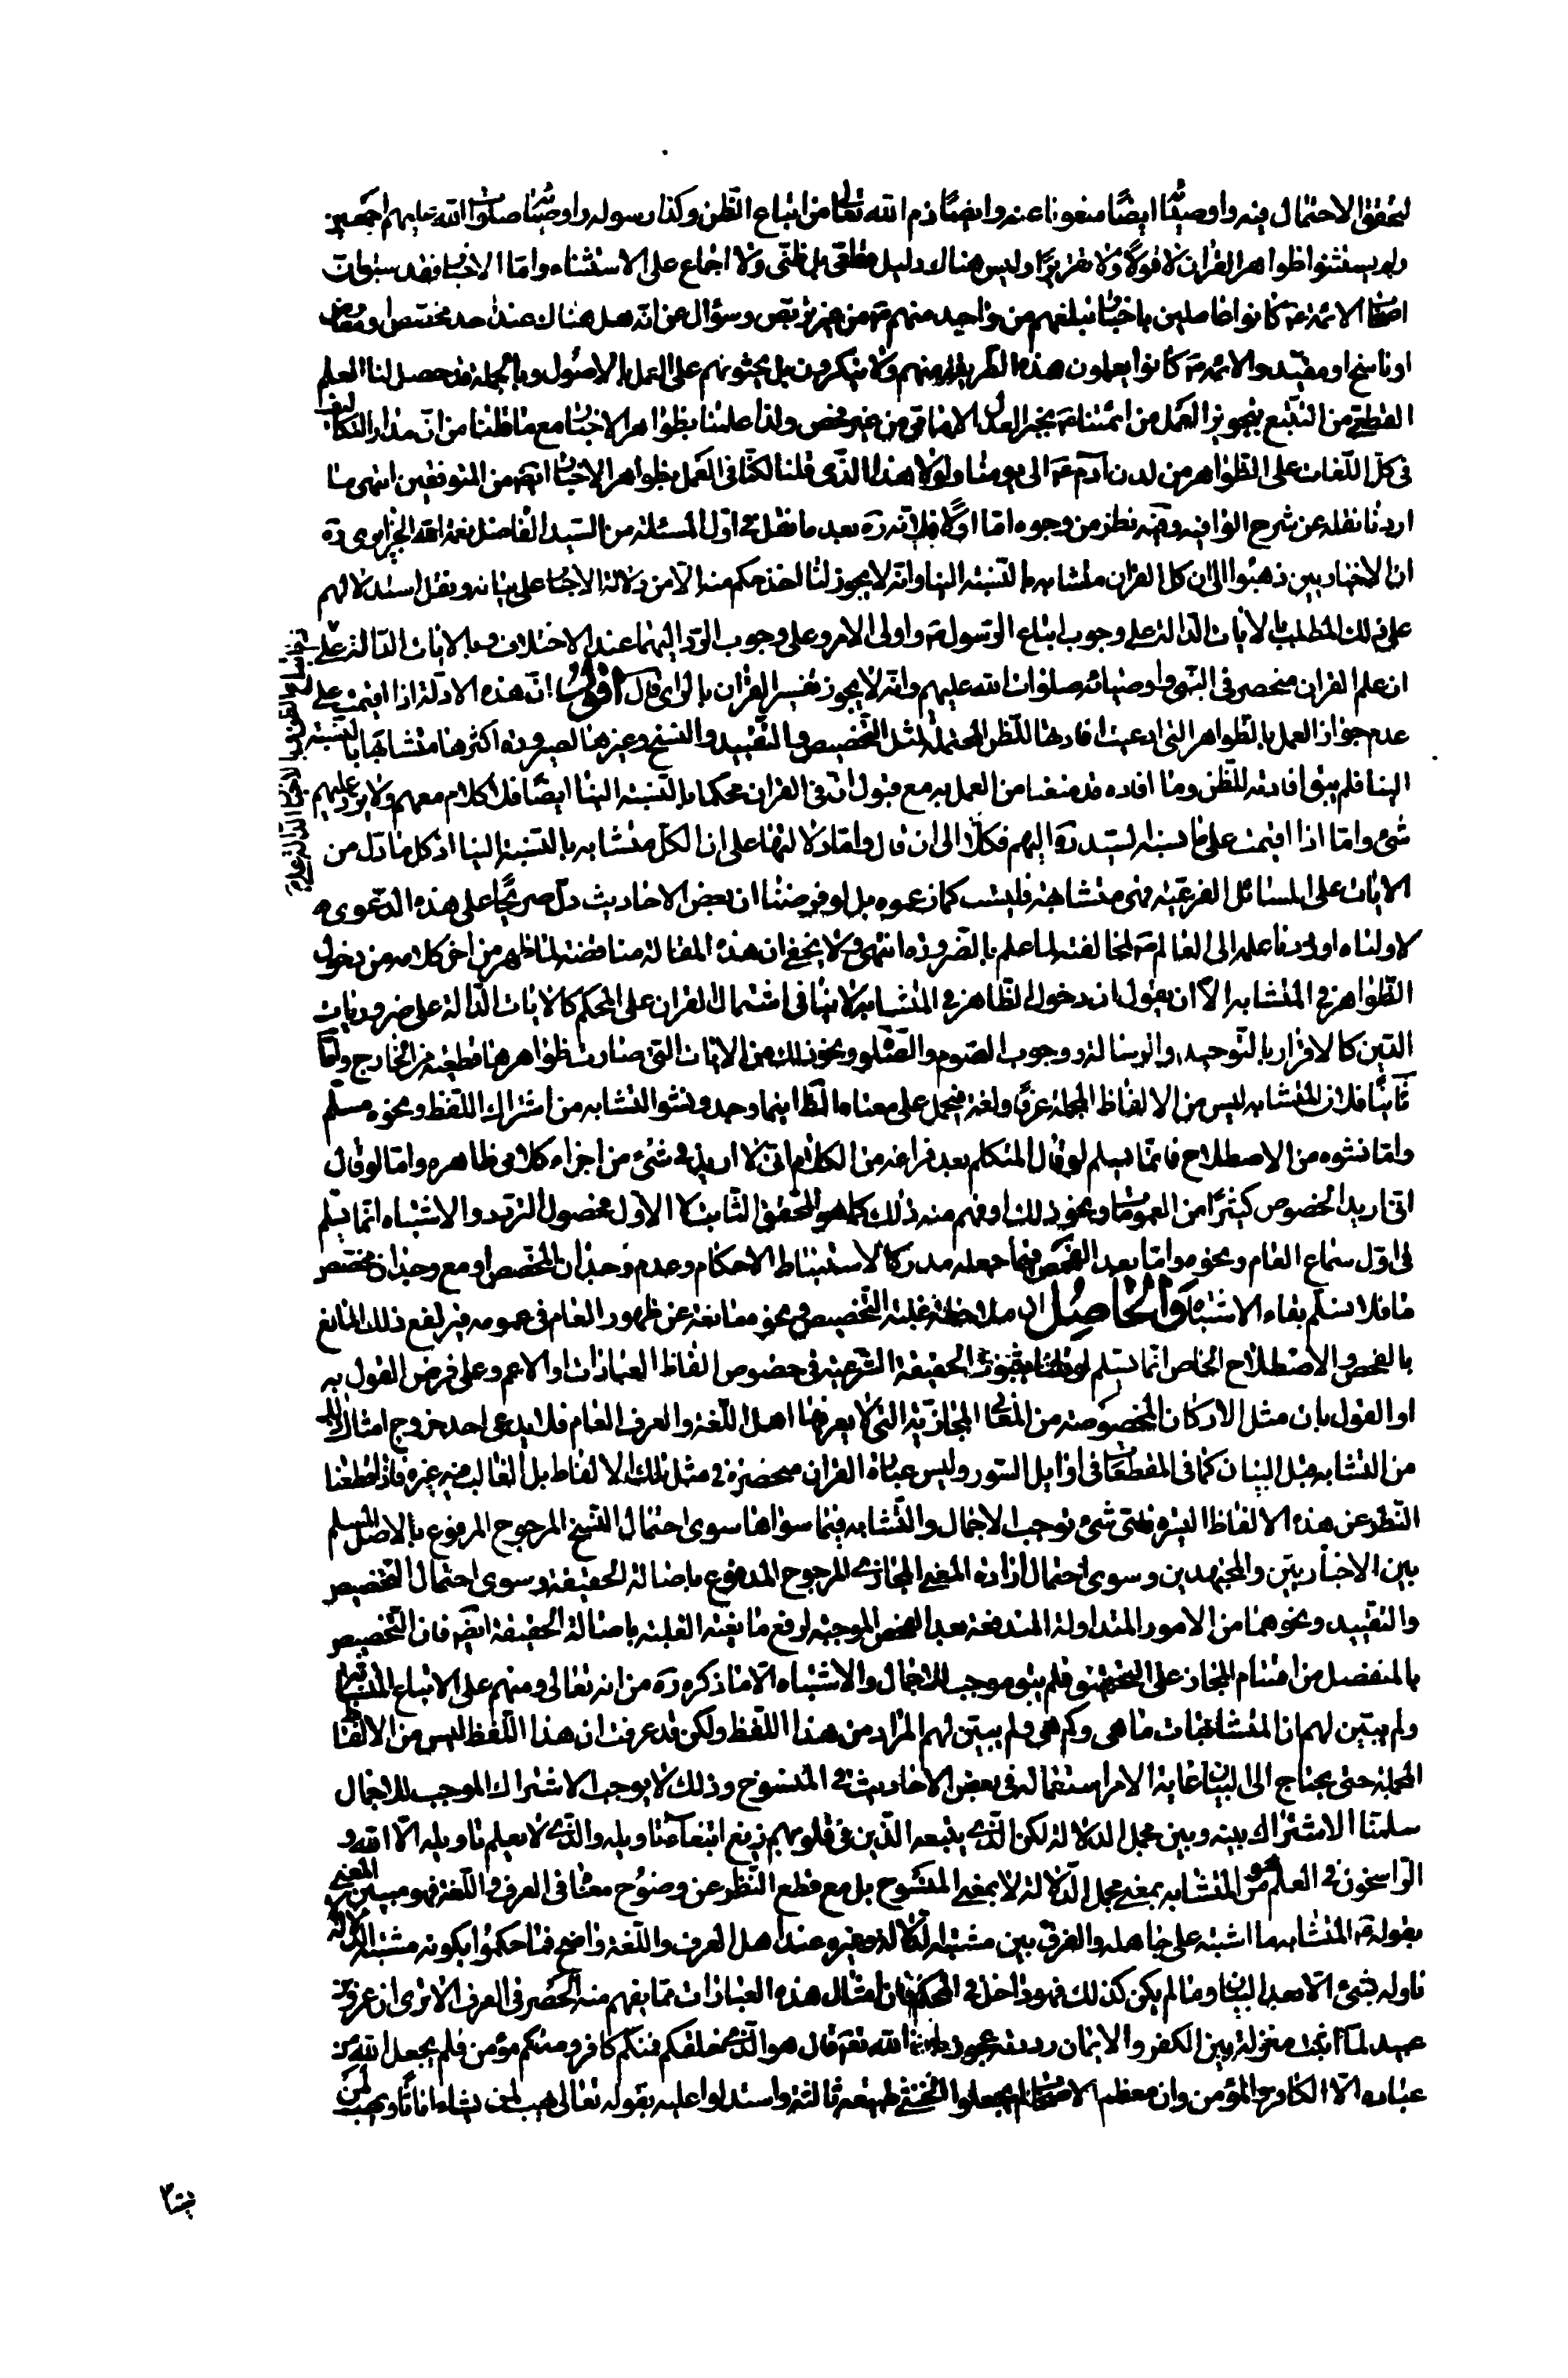 لتحقق الاحتمال فيه واوصيائه ايضا ممنوعا عنه وايضا ذم الله تعالى من اتباع الظن وكذا رسوله واوصيائه صلوات الله عليهم اجمعين
ولم يستثنوا ظواهر القران لا قولا ولا تقريرا وليس هناك دليل قطعى بل ظنى ولا اجماع على الاستثناء واما الاخبار فقد سبق ان
اصحاب الائمة ع كانوا عاملين باخبار تبلغهم من واحد منهم ع من غير تربص وسؤال عن انه هل هناك عند احد مخصص او معارض
او ناسخ او مقيد والائمة ع كانوا يعلمون هذه الطريقة منهم ولا ينكرون بل يحثونهم على العمل بالاصول وبالجملة قد حصل لنا العلم
القطعى من التتبع بتجويز العمل من ائمتنا ع بخبر العدل الامامى من غير فحص ولذا عملنا بظواهر الاخبار مع ما ظننا من ان مدار التكاليف
فى كل اللغات على الظواهر من لدن آدم ع الى يومنا ولولا هذا الذى قلنا لكنا فى العمل بظواهر الاخبار ايضا من المتوقفين انتهى ما
اردنا نقله عن شرح الوافية وفيه نظر من وجوه اما اولا فلانه ره بعد ما نقل فى اول المسئلة من السيد الفاضل نعمة الله الجزايرى ره
ان الاخباريين ذهبوا الى ان كل القران متشابه بالنسبة الينا وانه لا يجوز لنا اخذ حكم منه الا من دلالة الاخبار على بيانه ونقل استدلالهم
على ذلك المطلب بالايات الدالة على وجوب اتباع الرسول ص واولى الامر وعلى وجوب الرد اليهما عند الاختلاف وبالايات الدالة على
ان علم القران منحصر فى النبى واوصيائه صلوات الله عليهم وانه لا يجوز تفسير القران بالراى قال اقول ان هذه الادلة اذا اقيمت على
عدم جواز العمل بالظواهر التى ادعيت افادتها للظن المحتملة لمثل التخصيص والتقييد والنسخ وغيرها لصيرورة اكثرها متشابها بالنسبة
الينا فلم يبق افادته للظن وما افاده قد منعنا من العمل به مع قبول ان فى القران محكما بالنسبة الينا ايضا فلا كلام معهم ولا يرد عليهم
شئ واما اذا اقيمت على ما نسبه السيد ره اليهم فكلا الى ان قال واما دلالتها على ان الكل متشابه بالنسبة الينا اذ كل ما دل من
الايات على المسائل الفرعية فهى متشابهة فليست كما زعموه بل لو فرضنا ان بعض الاحاديث دل صريحا على هذه الدعوى
لاولناه او رددنا علمه الى العالم ع لمخالفته لما علم بالضرورة انتهى ولا يخفى ان هذه المقالة مناقضة لما ظهر من اخر كلامه من دخول
الظواهر فى المتشابه الا ان يقول ان دخول الظاهر فى المتشابه لا ينافى اشتمال القران على المحكم كالايات الدالة على ضروريات
الدين كالاقرار بالتوحيد والرسالة ووجوب الصوم والصلوة ونحو ذلك من الايات التى صارت ظواهرها قطعية من الخارج واما
ثانيا فلان المتشابه ليس من الالفاظ المجملة عرفا ولغة فيحمل على معناه الظ اينما وجد ونشو التشابه من اشتراك اللفظ ونحوه مسلم
واما نشوه من الاصطلاح فانما يسلم لو قال المتكلم بعد فراغه من الكلام انى لا اريد فى شئ من اجزاء كلامى ظاهره واما لو قال
انى اريد الخصوص كثيرا من العمومات ونحو ذلك او فهم منه ذلك كما هو المحقق الثابت كالاول فحصول التردد والاشتباه انما يسلم
فى اول سماع العام ونحوه واما بعد الفحص فيما جعله مدركا لاستنباط الاحكام وعدم وجدان المخصص او مع وجدان مخصص
ما فلا نسلم بقاء الاشتباه والحاصل ان ملاحظة غلبة التخصيص ونحوه مانعة عن ظهور العام فى عمومه فيرتفع ذلك المانع
بالفحص والاصطلاح الخاص انما يسلم لو قلنا بثبوت الحقيقة الشرعية فى خصوص الفاظ العبادات او الاعم وعلى فرض القول به
او القول بان مثل الاركان المخصوصة من المعانى المجازية التى لا يعرفها اهل اللغة والعرف العام فلا يدعى احد خروج امثال ذلك
من التشابه قبل البيان كما فى المقطعات فى اوايل السور وليس عبارة القران منحصرة فى مثل تلك الالفاظ بل الغالب فيه غيره فاذا قطعنا
النظر عن هذه الالفاظ اليسيرة فاى شئ يوجب الاجمال والتشابه فيما سواها سوى احتمال النسخ المرجوح المرفوع بالاصل المسلم
بين الاخباريين والمجتهدين وسوى احتمال ارادة المعنى المجازى المرجوح المدفوع باصالة الحقيقة وسوى احتمال التخصيص
والتقييد ونحوهما من الامور المتداولة المندفعة بعد الفحص الموجب لرفع مانعية الغلبة باصالة الحقيقة ايضا فان التخصيص
بالمنفصل من اقسام المجاز على التحقيق فلم يبق موجب للاجمال والاشتباه الا ما ذكره ره من انه تعالى ومنهم على الاتباع المتشابهات
ولم يبين لهم ان المتشابهات ما هى وكم هى ولم يبين لهم المراد من هذا اللفظ ولكن قد عرفت ان هذا اللفظ ليس من الالفاظ
المجملة حتى يحتاج الى البيان غاية الامر استعماله فى بعض الاحاديث فى المنسوخ وذلك لا يوجب الاشتراك الموجب للاجمال
سلمنا الاشتراك بينه وبين مجمل الدلالة لكن الذى يتبعه الذين فى قلوبهم زيغ ابتغاء تاويله والذى لا يعلم تاويله الا الله و
الراسخون فى العلم هو المتشابه بمعنى مجمل الدلالة لا بمعنى المنسوخ بل مع قطع النظر عن وضوح معناه فى العرف واللغة فهو مبين المعنى
بقوله ع المتشابه ما اشتبه على جاهله والفرق بين مشتبه الدلالة وغيره عند اهل العرف واللغة واضح فما حكموا بكونه مشتبه الدلالة
ناوله بشئ الا بعد البيان وما لم يكن كذلك فهو داخل فى المحكم فان امثال هذه العبارات مما يفهم منه الحصر فى العرف الا ترى ان عمرو بن
عبيد لما اثبت منزلة بين الكفر والايمان ردت عجوز بان الله تعالى قال هو الذى خلقكم فمنكم كافر ومنكم مؤمن فلم يجعل الله من
عباده الا الكافر والمؤمن وان معظم الاصحاب لم يجعلوا الخنثى طبيعة ثالثة واستدلوا عليه بقوله تعالى يهب لمن يشاء اناثا ويهب لمن